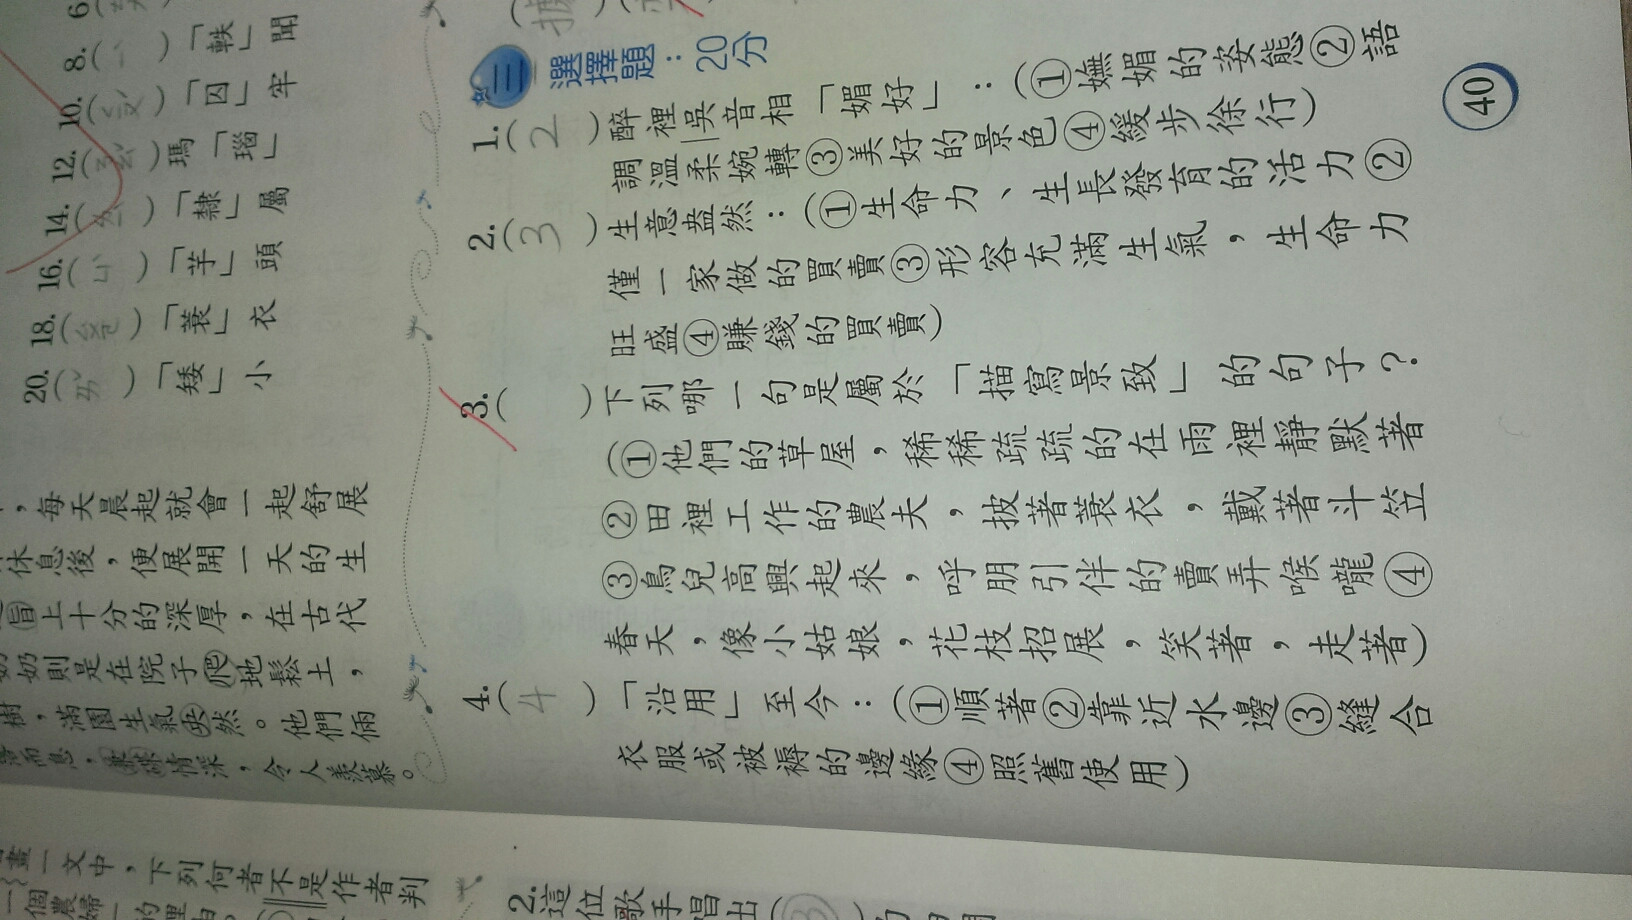 8.( ㄧˋ )「軼」聞
10.( )「囚」牢
12.( )瑪「瑙」
14.( )「隸」屬
16.( ㄩˋ )「芋」頭
18.( )「蓑」衣
20.( ㄞˇ )「矮」小
，每天晨起就會一起舒展
休息後，便展開一天的生
上十分的深厚，在古代
奶則是在院子爬地鬆土，
樹，滿園生氣央然。他們倆
而息，情深，令人羨慕。
三 選擇題：20分
1.( 2 )醉裡吳音相「媚好」：(①嫵媚的姿態②語
調溫柔婉轉③美好的景色④緩步徐行)
2.( 3 )生意盎然：(①生命力、生長發育的活力②
僅一家做的買賣③形容充滿生氣，生命力
旺盛④賺錢的買賣)
3.( )下列哪一句是屬於「描寫景致」的句子？
(①他們的草屋，稀稀疏疏的在雨裡靜默著
②田裡工作的農夫，披著蓑衣，戴著斗笠
③鳥兒高興起來，呼朋引伴的賣弄喉嚨④
春天，像小姑娘，花枝招展，笑著，走著)
4.( 4 )「沿用」至今：(①順著②靠近水邊③縫合
衣服或被褥的邊緣④照舊使用)
40
畫一文中，下列何者不是作者判
一個農婦
2.這位歌手唱出( 3 )